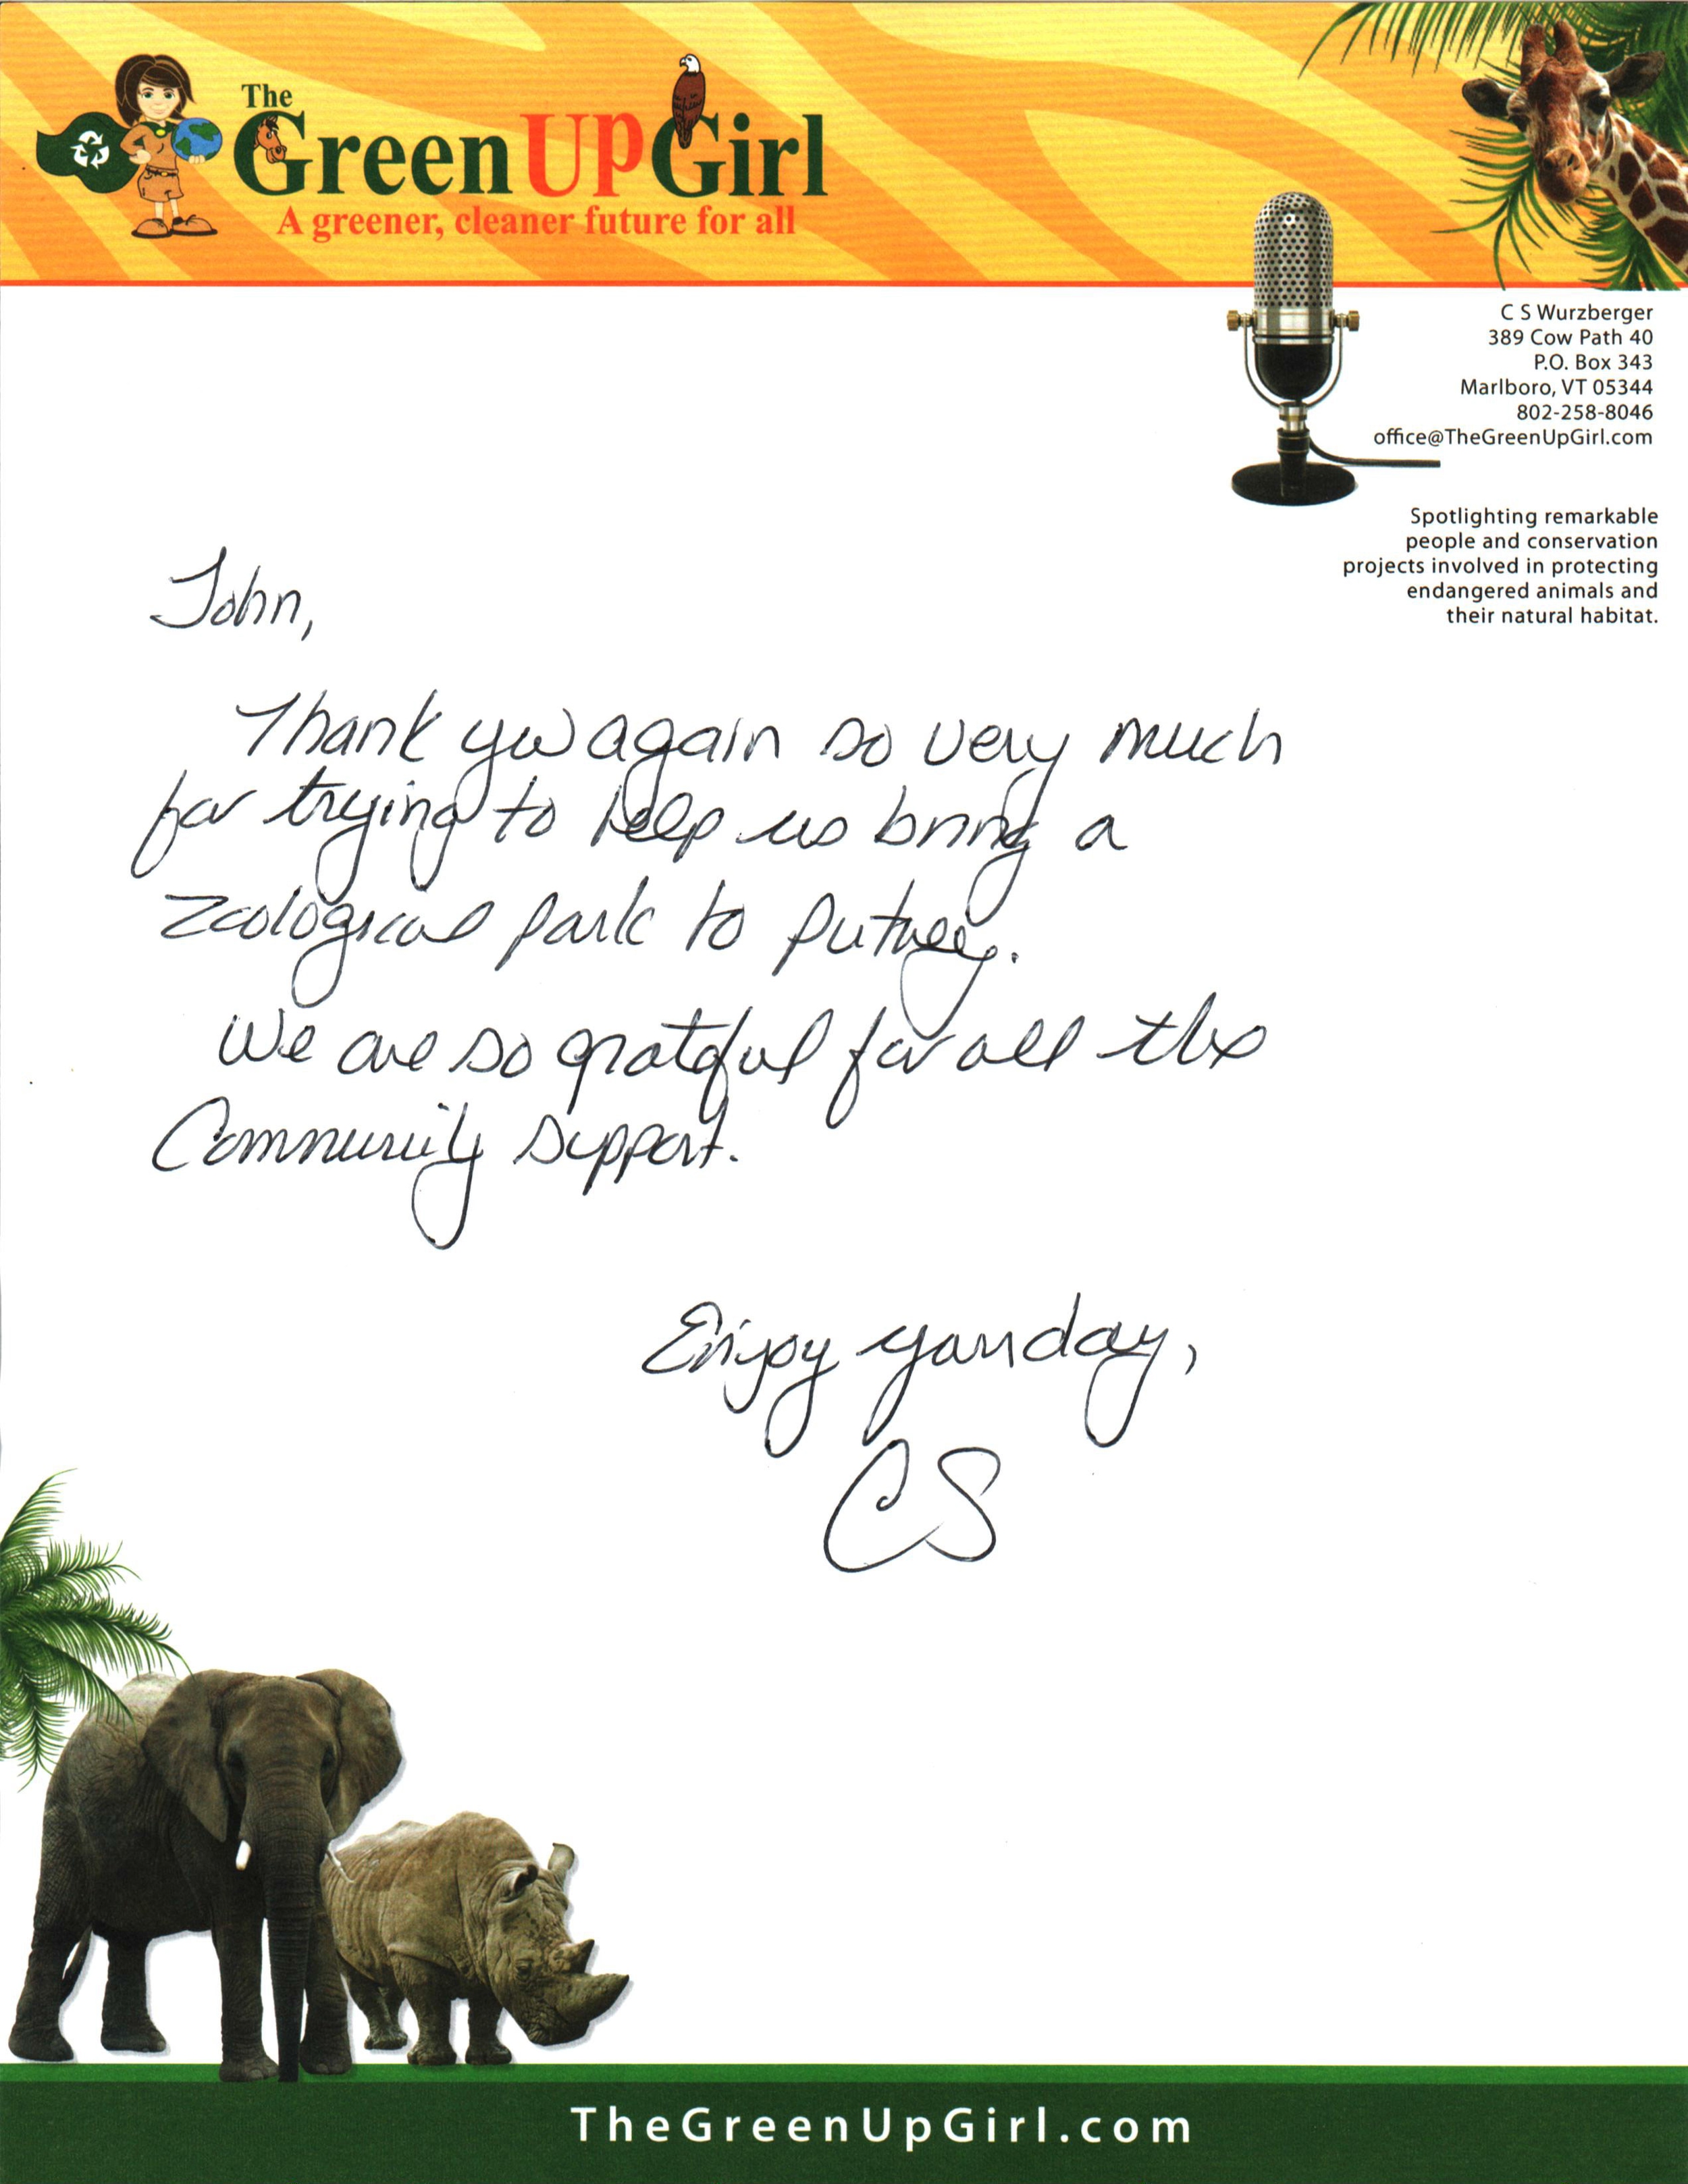 The
GreenUpGirl
A greener, cleaner future for all
C S Wurzberger
389 Cow Path 40
P.O. Box 343
Marlboro, VT 05344
802-258-8046
office@TheGreenUpGirl.com
Spotlighting remarkable
people and conservation
projects involved in protecting
endangered animals and
their natural habitat.
John,
Thank you again so very much
for trying to help us bring a
Zoological park to Putney.
We are so grateful for all the
Community support.
Enjoy your day,
CS
TheGreenUpGirl.com